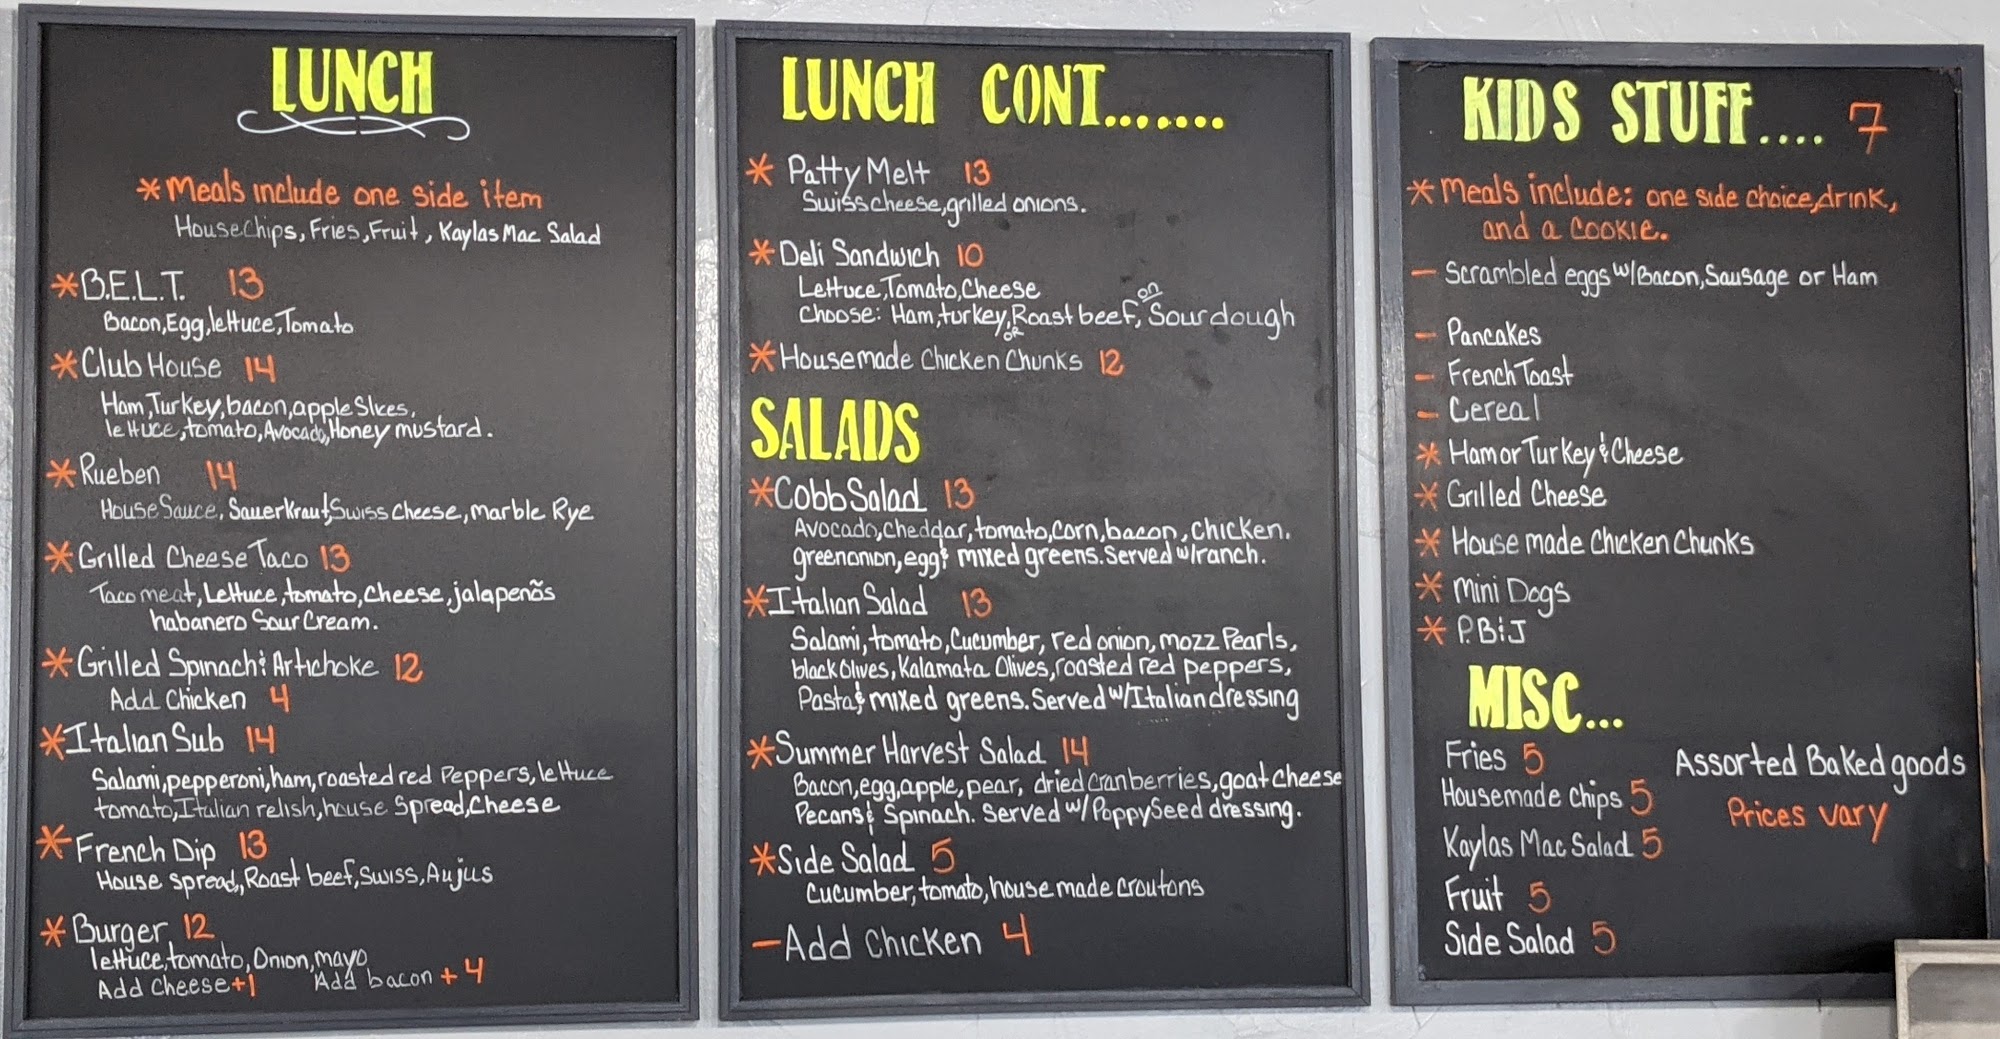 LUNCH
*Meals include one side item
House Chips, Fries, Fruit, Kaylas Mac Salad
*B.E.L.T. 13
Bacon, Egg, lettuce, Tomato
*Club House 14
Ham, Turkey, bacon, apple Slices,
lettuce, tomato, Avocado, Honey mustard.
*Rueben 14
House Sauce, Sauerkraut, Swiss cheese, marble Rye
*Grilled Cheese Taco 13
Taco meat, Lettuce, tomato, cheese, jalapenõs
habanero Sour Cream.
*Grilled Spinach & Artichoke 12
Add Chicken 4
*Italian Sub 14
Salami, pepperoni, ham, roasted red Peppers, lettuce
tomato, Italian relish, house Spread, Cheese
*French Dip 13
House spread, Roast beef, Swiss, Aujus
*Burger 12
lettuce, tomato, Onion, mayo
Add cheese +1 Add bacon +4
LUNCH CONT.......
*Patty Melt 13
Swiss cheese, grilled onions.
*Deli Sandwich 10
Lettuce, Tomato, Cheese
Choose: Ham, turkey, or Roast beef, on Sourdough
*Housemade Chicken Chunks 12
SALADS
*Cobb Salad 13
Avocado, cheddar, tomato, corn, bacon, chicken.
green onion, egg & mixed greens. Served w/ranch.
*Italian Salad 13
Salami, tomato, Cucumber, red onion, mozz Pearls,
black Olives, Kalamata Olives, roasted red peppers,
Pasta & mixed greens. Served w/Italian dressing
*Summer Harvest Salad 14
Bacon, egg, apple, pear, dried cranberries, goat cheese
Pecans & Spinach. Served w/ Poppy Seed dressing.
*Side Salad 5
Cucumber, tomato, house made croutons
-Add Chicken 4
KIDS STUFF.... 7
*Meals include: one side choice, drink,
and a cookie.
- Scrambled eggs w/Bacon, Sausage or Ham
- Pancakes
- French Toast
- Cereal
* Ham or Turkey & Cheese
* Grilled Cheese
* House made Chicken Chunks
* Mini Dogs
* P.B & J
MISC...
Fries 5
Housemade chips 5
Kaylas Mac Salad 5
Fruit 5
Side Salad 5
Assorted Baked goods
Prices vary